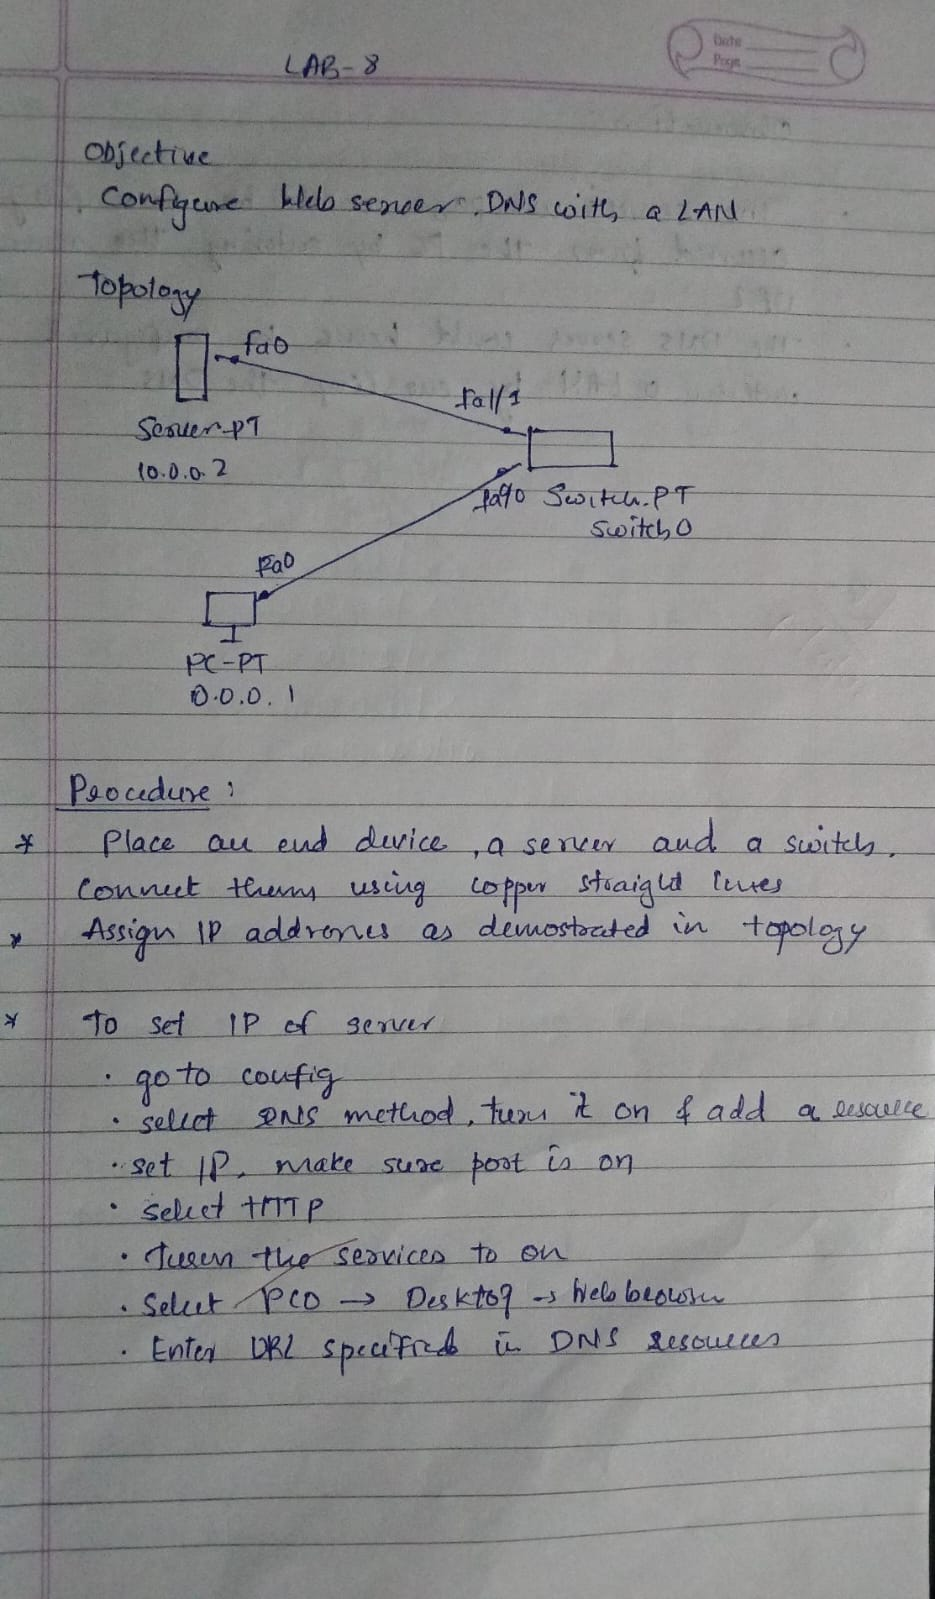 Date
Page
LAB-8
Objective
Configure Web server, DNS with a LAN
Topology
fa0
fa1/1
Server-PT
10.0.0.2
fa0/0 Switch-PT
Switch0
Fa0
PC-PT
0.0.0.1
Procedure:
* Place an end device, a server and a switch.
Connect them using copper straight lines
* Assign IP addresses as demostrated in topology
* To set IP of server
· go to config
· select DNS method, turn it on & add a resource
· set IP, make sure port is on
· Select HTTP
· Turn the services to on
· Select PC0 → Desktop → Web browser
· Enter URL specified in DNS resources